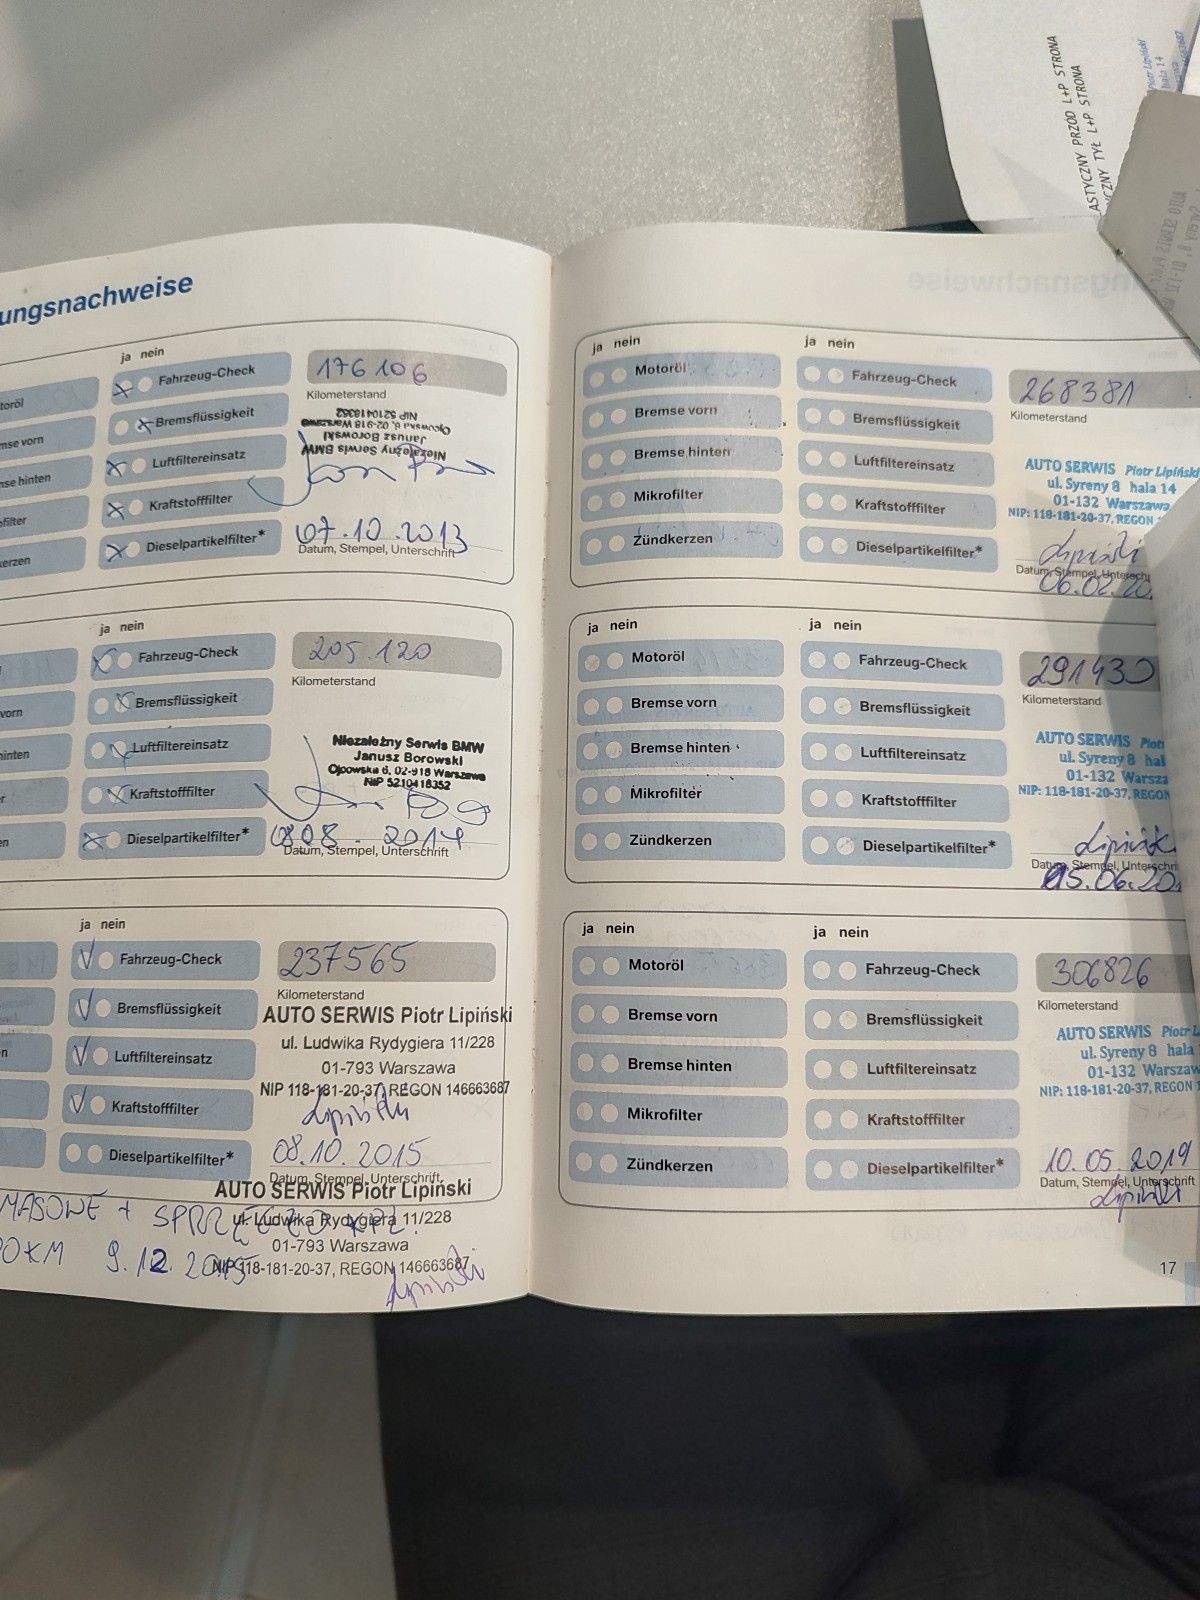 STRONA
L+P STRONA
hala 14
ungsnachweise
ja nein
Fahrzeug-Check
Bremsflüssigkeit
Luftfiltereinsatz
Kraftstofffilter
Dieselpartikelfilter*
176 106
Kilometerstand
Niezależny Serwis BMW
Janusz Borowski
Ojcowska 6, 02-918 Warszawa
NIP 5210418352
07.10.2013
Datum, Stempel, Unterschrift
vorn
hinten
ja nein
Fahrzeug-Check
Bremsflüssigkeit
Luftfiltereinsatz
Kraftstofffilter
Dieselpartikelfilter*
205.120
Kilometerstand
Niezależny Serwis BMW
Janusz Borowski
Ojcowska 6, 02-918 Warszawa
NIP 5210418352
0808. 2014
Datum, Stempel, Unterschrift
ja nein
Fahrzeug-Check
Bremsflüssigkeit
Luftfiltereinsatz
Kraftstofffilter
Dieselpartikelfilter*
237565
Kilometerstand
AUTO SERWIS Piotr Lipiński
ul. Ludwika Rydygiera 11/228
01-793 Warszawa
NIP 118-181-20-37, REGON 146663687
Lipiński
08.10.2015
Datum, Stempel, Unterschrift
AUTO SERWIS Piotr Lipiński
ul. Ludwika Rydygiera 11/228
01-793 Warszawa
NIP 118-181-20-37, REGON 146663687
MASOWE + SPRZĘGŁO KPL.
0KM 9.12.2015
Lipiński
ja nein
Motoröl
Bremse vorn
Bremse hinten
Mikrofilter
Zündkerzen
ja nein
Fahrzeug-Check
Bremsflüssigkeit
Luftfiltereinsatz
Kraftstofffilter
Dieselpartikelfilter*
268381
Kilometerstand
AUTO SERWIS Piotr Lipiński
ul. Syreny 8 hala 14
01-132 Warszawa
NIP: 118-181-20-37, REGON
Lipiński
Datum, Stempel, Unterschr
06.02.20
ja nein
Motoröl
Bremse vorn
Bremse hinten
Mikrofilter
Zündkerzen
ja nein
Fahrzeug-Check
Bremsflüssigkeit
Luftfiltereinsatz
Kraftstofffilter
Dieselpartikelfilter*
291430
Kilometerstand
AUTO SERWIS Piot
ul. Syreny 8 hal
01-132 Warsza
NIP: 118-181-20-37, REGON
Lipińsk
Datum, Stempel, Unterschri
15.06.20
ja nein
Motoröl
Bremse vorn
Bremse hinten
Mikrofilter
Zündkerzen
ja nein
Fahrzeug-Check
Bremsflüssigkeit
Luftfiltereinsatz
Kraftstofffilter
Dieselpartikelfilter*
306826
Kilometerstand
AUTO SERWIS Piotr L
ul. Syreny 8 hala
01-132 Warszaw
NIP: 118-181-20-37, REGON
10.05.2019
Datum, Stempel, Unterschrift
Lipiński
17